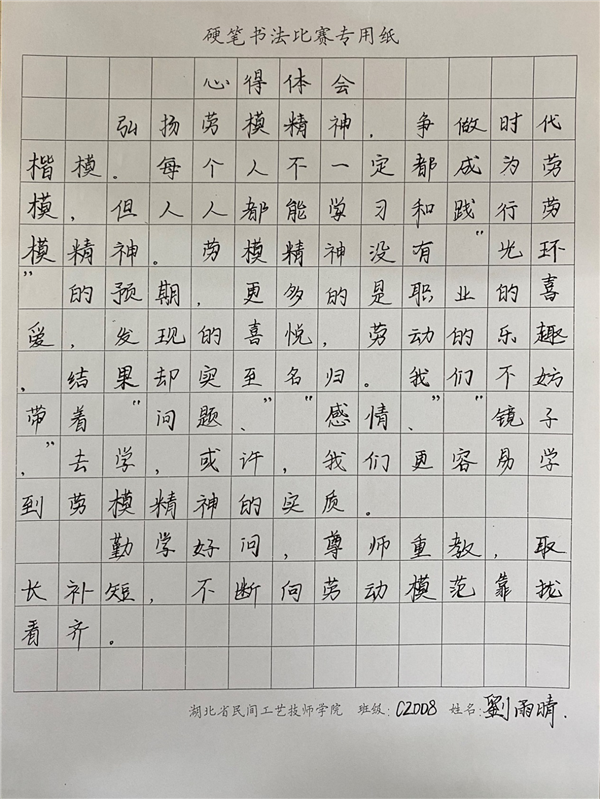 硬笔书法比赛专用纸
心得体会
弘扬劳模精神，争做时代
楷模。每个人不一定都成为劳
模，但人人都能学习和践行劳
模精神。劳模精神没有“光环
”的预期，更多的是职业的喜
爱，发现的喜悦，劳动的乐趣
，结果却实至名归。我们不妨
带着“问题、”“感情、”“镜子
，”去学，或许，我们更容易学
到劳模精神的实质。
勤学好问，尊师重教，取
长补短，不断向劳动模范靠拢
看齐。
湖北省民间工艺技师学院 班级：C2008 姓名：劉雨晴.